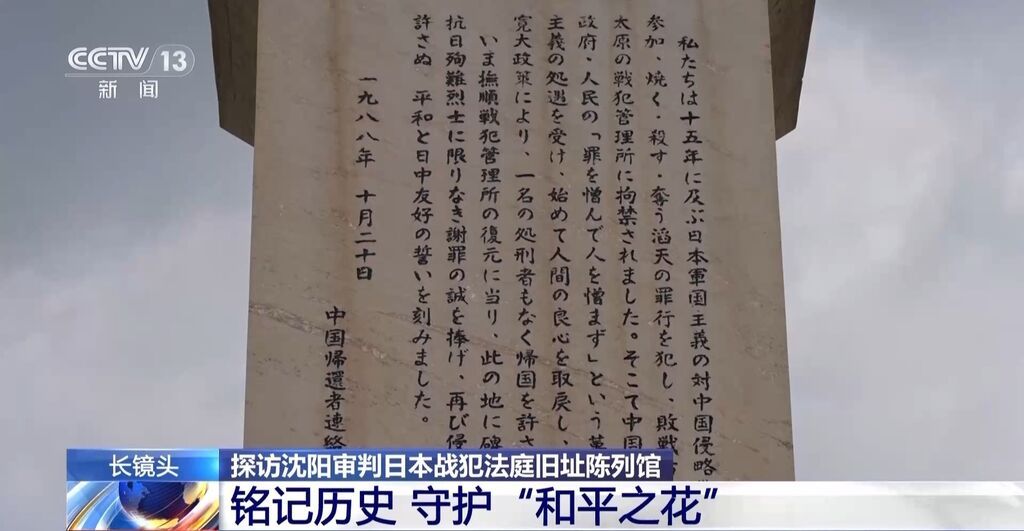 CCTV 13
新闻
私たちは十五年に及ぶ日本軍国主義の対中国侵略
参加、焼く・殺す・奪う滔天の罪行を犯し、敗戦
太原の戦犯管理所に拘禁されました。そこで中国
政府・人民の「罪を憎んで人を憎まず」という
主義の処遇を受け、始めて人間の良心を取戻し、
寛大政策により、一名の処刑者もなく帰国を許さ
いま撫順戦犯管理所の復元に当り、此の地に碑
抗日殉難烈士に限りなき謝罪の誠を捧げ、再び侵
許さぬ 平和と日中友好の誓いを刻みました。
一九八八年 十月二十日
中国帰還者連絡
长镜头
探访沈阳审判日本战犯法庭旧址陈列馆
铭记历史 守护“和平之花”